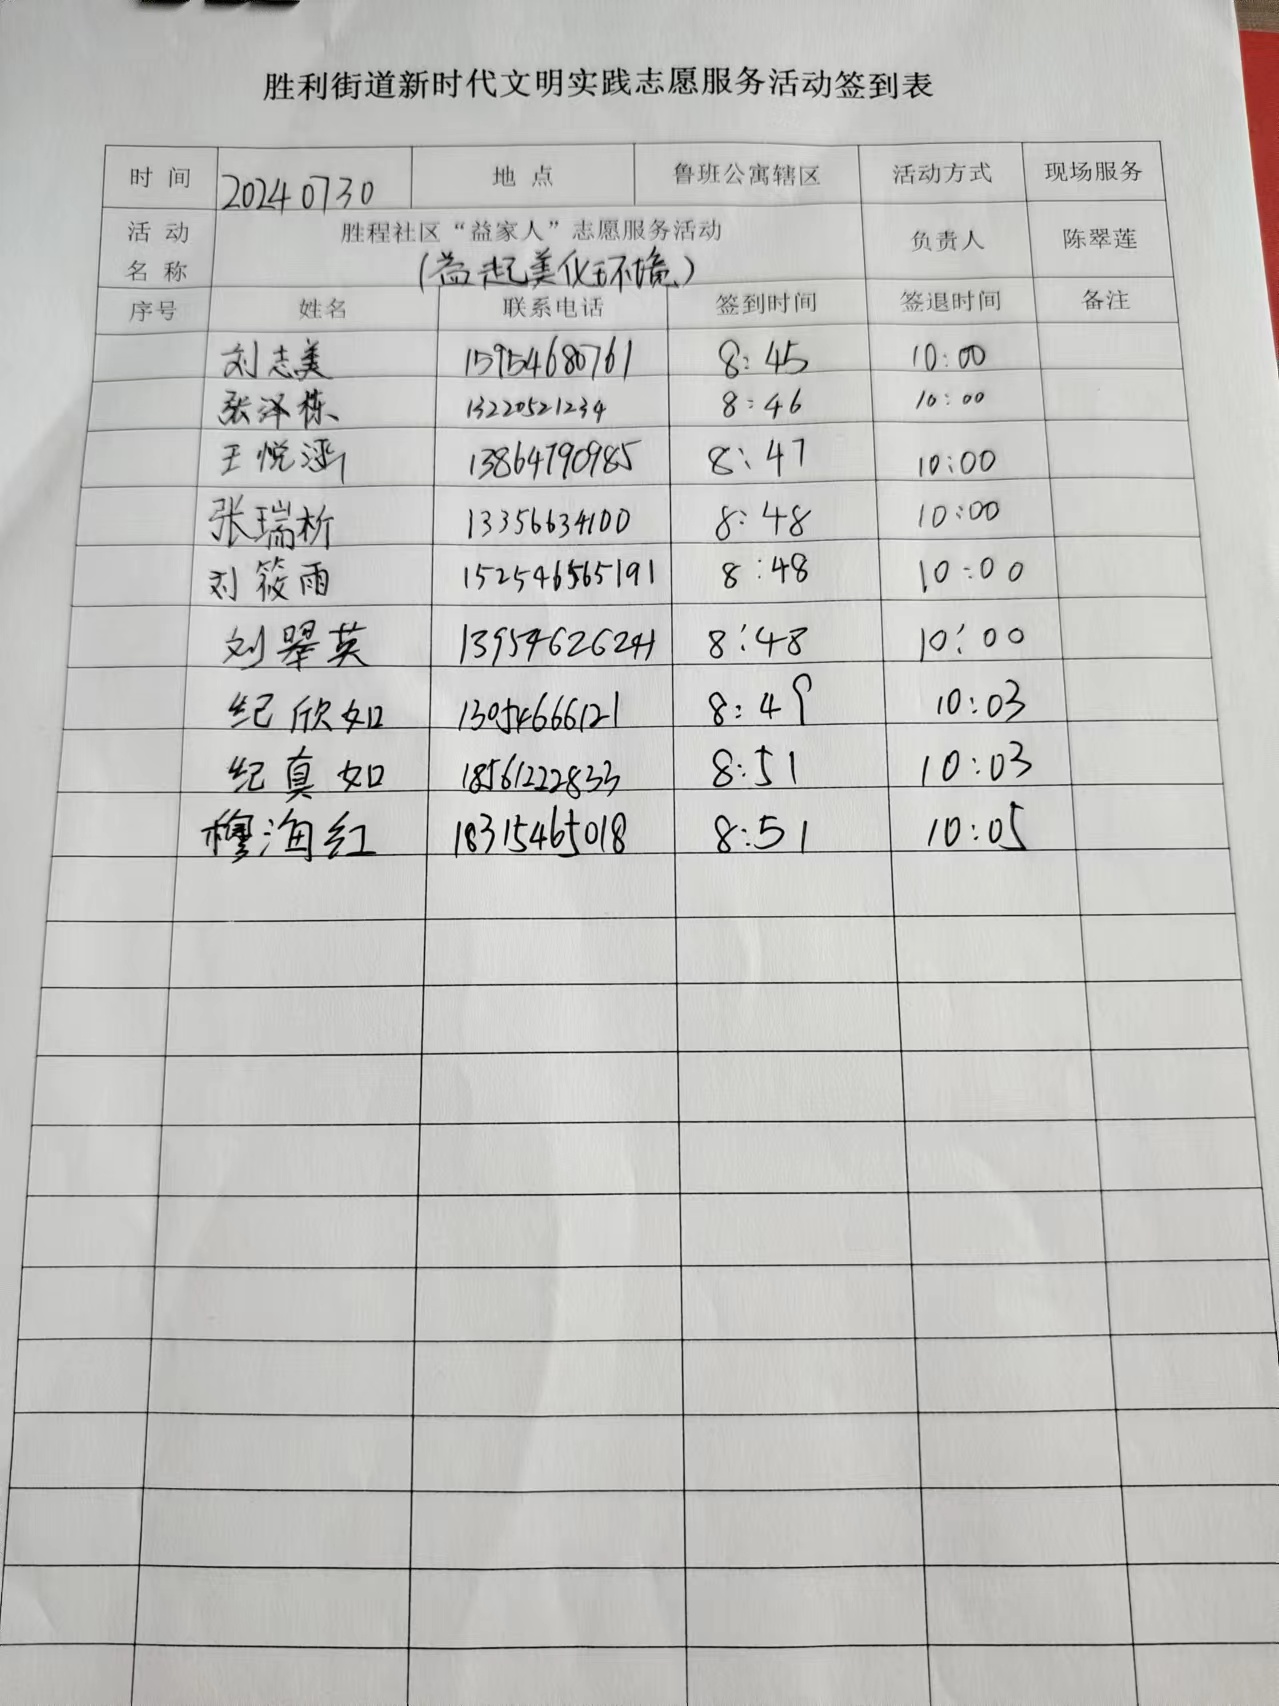 胜利街道新时代文明实践志愿服务活动签到表
时间 20240730 地点 鲁班公寓辖区 活动方式 现场服务
活动名称 胜程社区“益家人”志愿服务活动 负责人 陈翠莲
(益起美化环境)
序号 姓名 联系电话 签到时间 签退时间 备注
刘志美 15954680761 8:45 10:00
张泽栋 13220521234 8:46 10:00
王悦涵 13864790985 8:47 10:00
张瑞析 13356634100 8:48 10:00
刘筱雨 152546565191 8:48 10:00
刘翠英 13954626241 8:48 10:00
纪欣如 13054666121 8:49 10:03
纪真如 18561222833 8:51 10:03
穆海红 18315465018 8:51 10:05